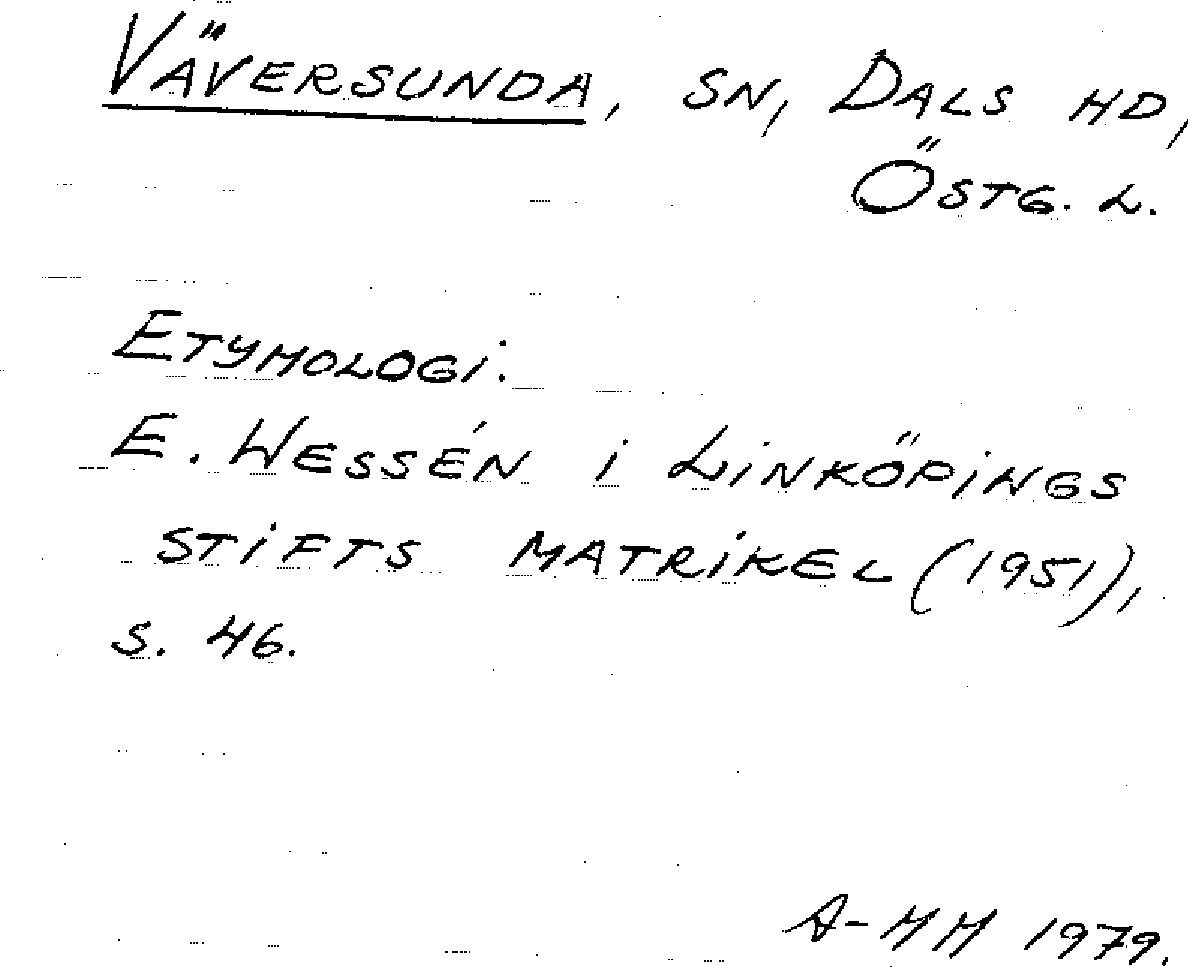 Väversunda, sn, Dals hd,
Östg. l.
Etymologi:
E. Wessén i Linköpings
stifts matrikel (1951),
s. 46.
A-MM 1979.